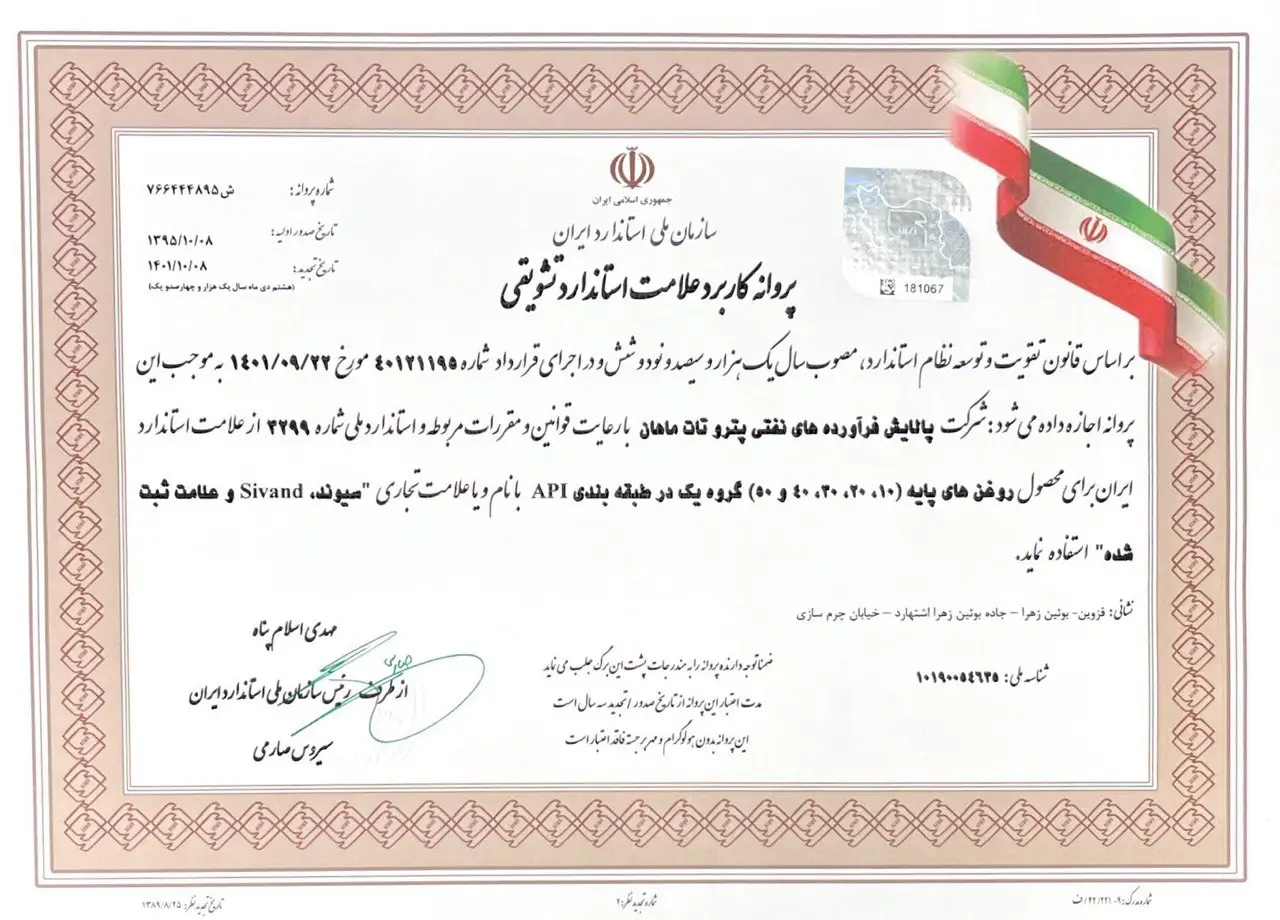 جمهوری اسلامی ایران
سازمان ملی استاندارد ایران
پروانه کاربرد علامت استاندارد تشویقی
شماره پروانه: ش۷۶۶۴۴۴۸۹۵
تاریخ صدور اولیه: ۱۳۹۵/۱۰/۰۸
تاریخ تجدید: ۱۴۰۱/۱۰/۰۸
(هشتم دی ماه سال یک هزار و چهارصد و یک)
181067
بر اساس قانون تقویت و توسعه نظام استاندارد، مصوب سال یک هزار و سیصد و نود و شش و در اجرای قرارداد شماره ۴۰۱۲۱۱۹۵ مورخ ۱۴۰۱/۰۹/۲۲ به موجب این
پروانه اجازه داده می شود: شرکت پالایش فرآورده های نفتی پترو تات ماهان با رعایت قوانین و مقررات مربوطه و استاندارد ملی شماره ۳۲۹۹ از علامت استاندارد
ایران برای محصول روغن های پایه (۱۰، ۲۰، ۳۰، ۴۰ و ۵۰) گروه یک در طبقه بندی API با نام و یا علامت تجاری "سیوند، Sivand و علامت ثبت
شده" استفاده نماید.
نشانی: قزوین- بوئین زهرا – جاده بوئین زهرا اشتهارد – خیابان چرم سازی
شناسه ملی: ۱۰۱۹۰۰۵۴۶۳۵
ضمنا توجه دارنده پروانه را به مندرجات پشت این برگ جلب می نماید
مدت اعتبار این پروانه از تاریخ صدور / تجدید سه سال است
این پروانه بدون هولوگرام و مهر برجسته فاقد اعتبار است
مهدی اسلام پناه
از طرف رئیس سازمان ملی استاندارد ایران
سیروس صارمی
شماره مدرک: ۴۲/۲۲۱-۰۹/ف
شماره تجدید نظر: ۲
تاریخ تجدید نظر: ۱۳۸۹/۸/۲۵